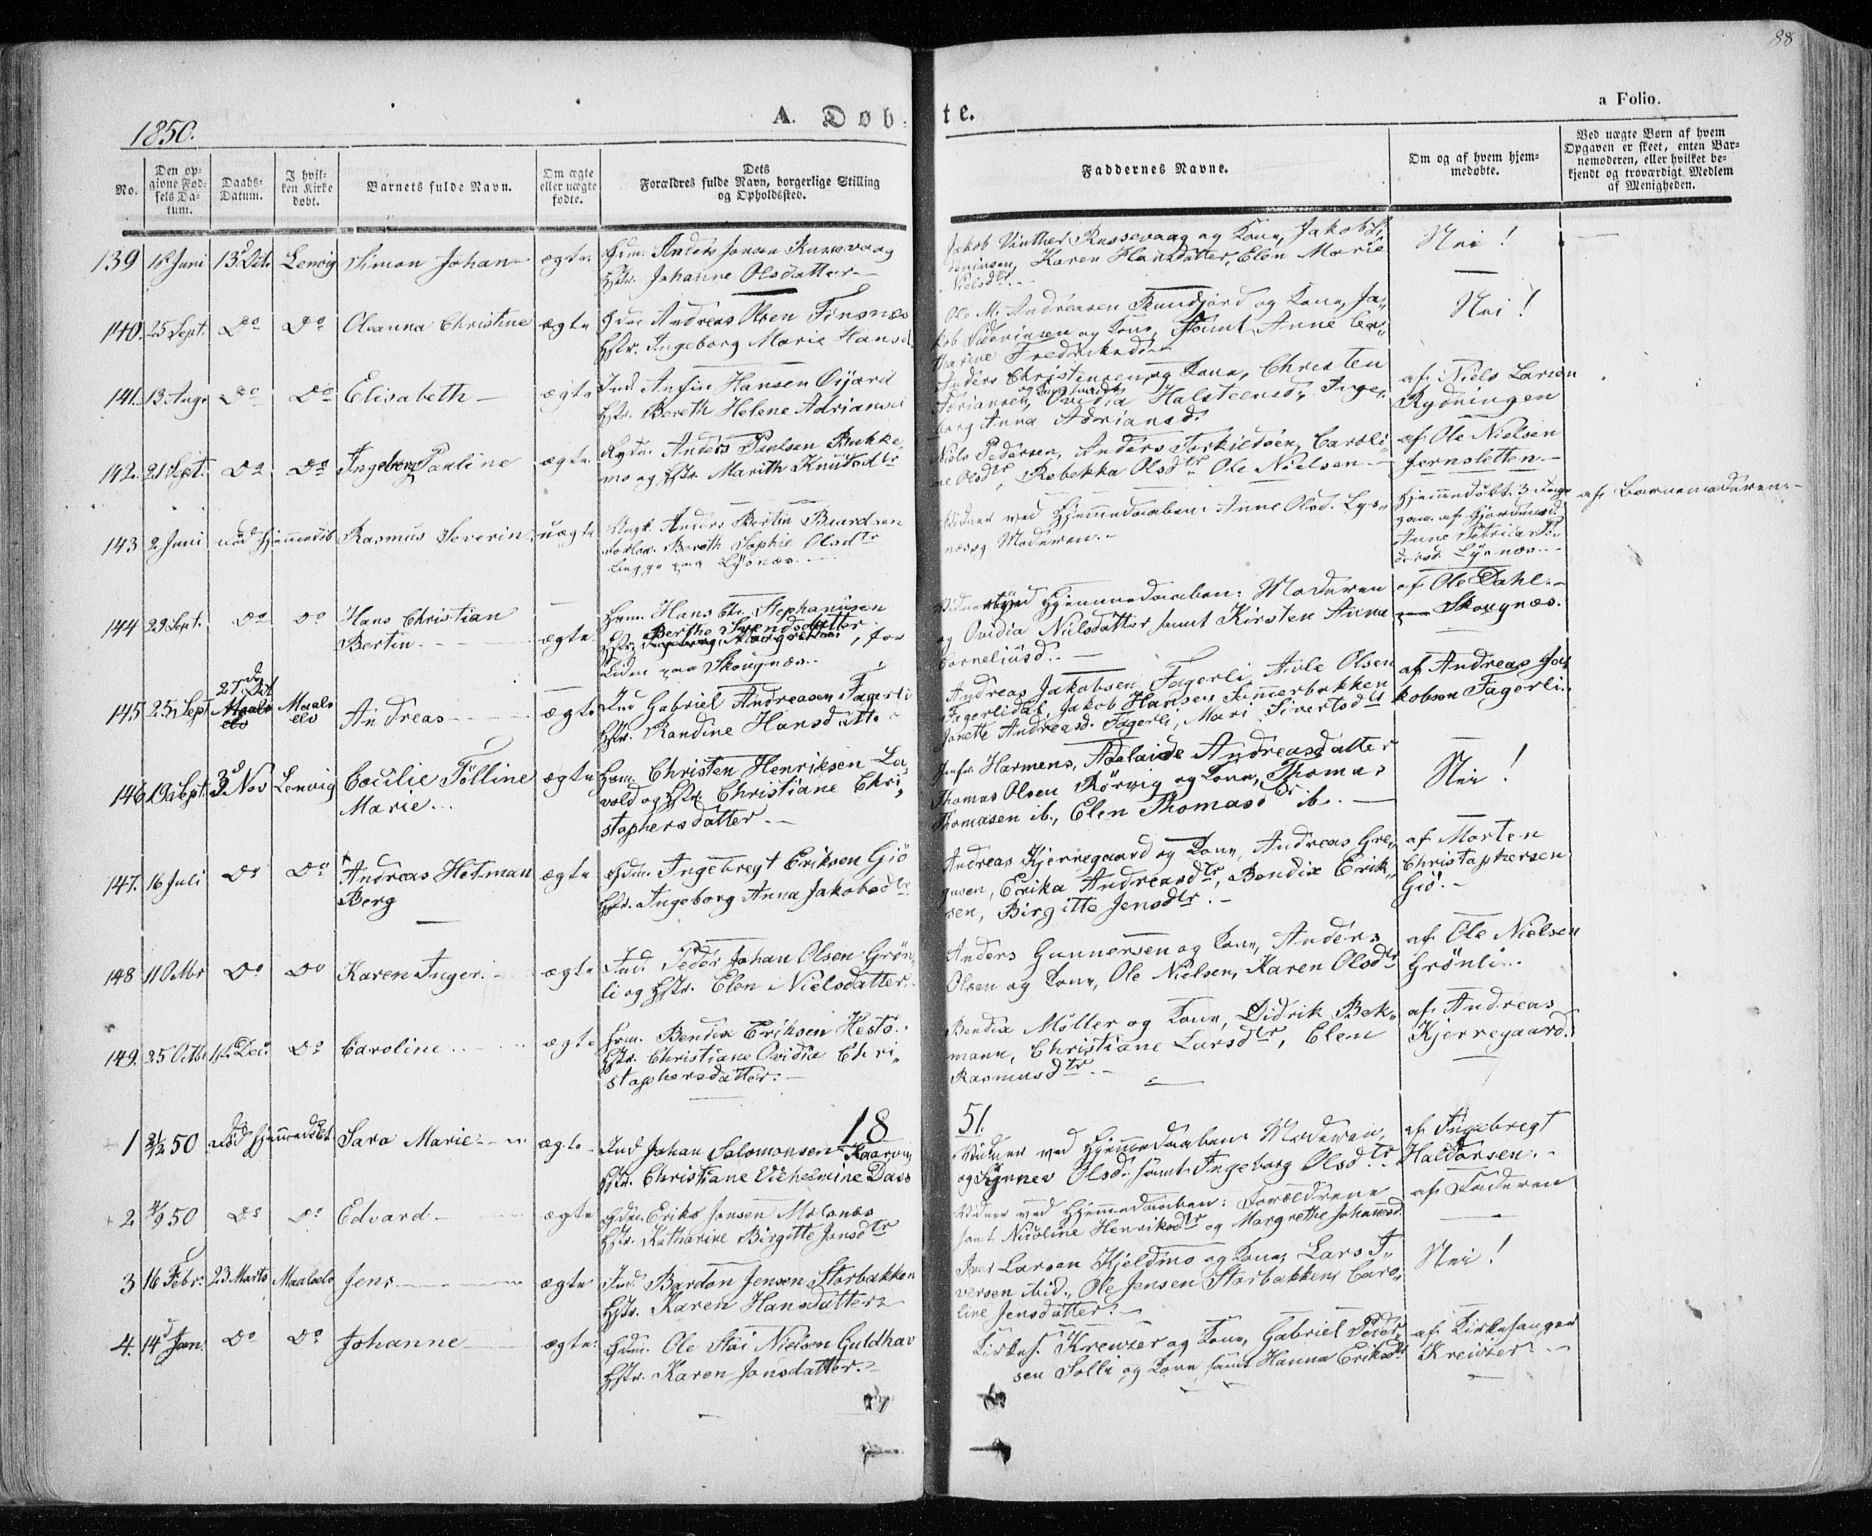 88
1850.
A. Døb-te.
a Folio.
No.
Den opgivne Fødsels Datum.
Daabs-Datum.
I hvilken Kirke døbt.
Barnets fulde Navn.
Om ægte eller uægte fødte.
Dets Forældres fulde Navn, borgerlige Stilling og Opholdssted.
Faddernes Navne.
Om og af hvem hjemmedøbte.
Ved uægte Børn af hvem Opgaven er skeet, enten Barnemoderen, eller hvilket bekjendt og troværdigt Medlem af Menigheden.
139 Juni 13. Oct. Lenvig Simon Johan ægte
Anders Jensen
Hstr. Johanne Olsdatter
Jakob Vinther Russevaag og Kone, Jakob
Karen Hansdatter, Elen Marie
Nielsdtr.
Nei!
140. 25 Sept. Do Do Oleanna Christine ægte
Andreas Olsen Finsnæs
Hstr. Ingeborg Marie Hansd.
Ole M. Andreasen og Kone, Ja-
kob og Kone, samt Anne Ca-
tharine Fredriksd.
Nei!
141. 13 Aug. Do Do Elisabeth ægte
Ind. Anfin Hansen
Hstr. Bereth Helene Adriansd.
Anders Christensen og Kone, Christen
Adriansen, Ovidia Halsteensd., Inge-
borg Anna Adriansd.
af Niels Larsen
Rydningen
142. 21 Sept. Do Do Ingeborg Pauline ægte
Anders Paulsen Bukke-
mo og Hstr. Marith Knutsdtr
Niels Pedersen, Anders Torkildsen, Caroli-
ne Olsdtr, Rebekka Olsdtr Ole Nielsen
af Ole Nielsen
Jernsletten.
143 2 Juni Hjemmedøb Rasmus Severin uægte
Ungk. Anders Bertin
Bereth Sophie Olsdtr
begge paa Lysnæs.
Vidner ved Hjemmedaaben: Anne Olsd. Lys-
næs og Moderen.
Hjemmedøbt
Anne
Lysnæs
af Barnemoderen.
144 29 Sept. Do Do Hans Christian ægte
Bertin
Hans Chr. Stephanusen
Berthe Svendsdatter
Hstr. , for
tiden paa Skougnæs.
Vidner ved Hjemmedaaben: Moderen
og Ovidia Nielsdatter samt Kirsten Anna
Corneliusd.
af Ole Dahl
Skougnæs.
145 25 Sept 27. Oct Maalselv Andreas ægte
Ind Gabriel Andreasen Fagerli
Hstr. Randine Hansdatter
Andreas Jakobsen Fagerli, Aule Olsen
Fagerlidal, Jakob Hansen
Jonette Andreasd. Fagerli, Mari Sivertsdtr
af Andreas Ja-
kobsen Fagerli.
146 19 Sept. 3d Nov Lenvig Cecilie Tölline ægte
Marie
Christen Henriksen La-
vold og Hstr Christiane Chri-
stophersdatter
Jmfr. Harmens, Adelaide Andreasdatter
Thomas Olsen Rörvig og Kone, Thomas
Thomasen ib., Elen Thomasdtr ib.
Nei!
147. 16 Juli Do Do Andreas Hetman ægte
Berg
Ingebregt Eriksen Giö
Hstr. Ingeborg Anna Jakobsdtr.
Andreas Kjerregaard og Kone, Andreas Gre-
gusen, Erika Andreasdtr, Bendix Erik-
sen, Birgitte Jensdtr.
af Morten
Christophersen
Giö.
148 11 Octbr Do Do Karen Inger ægte
Ind. Peder Johan Olsen Grön-
li og Hstr. Elen Nielsdatter.
Anders Gunnersen og Kone, Anders
Olsen og Kone, Ole Nielsen, Karen Olsdtr
af Ole Nielsen
Grönli.
149. 25 Octbr. Dec. Do Caroline ægte
Bendix Eriksen Hesto.
Hstr. Christiane Ovidia Chri-
stophersdatter.
Bendix Møller og Kone, Didrik Bek-
mann, Christiane Larsdtr, Elen
Rasmusdtr.
af Andreas
Kjerregaard.
1851.
1 50 Hjemmedøbt Sara Marie ægte
Ind Johan Salomonsen
Hstr. Christiane Vilhelmine Dass
Vidner ved Hjemmedaaben: Moderen,
og Synnev Olsd. samt Ingeborg Olsdtr.
af Ingebregt
Haldorsen.
2 50 Do Do Edvard ægte
Erik Jensen
Hstr. Katharine Birgitte Jonsdtr
Vidner ved Hjemmedaaben: Forældrene
samt Nicoline Henriksdtr og Margrethe Johannsd.
af Faderen
3 16 Febr. 23 Marts Maalselv Jens ægte
Ind. Bardon Jensen Storbakken
Hstr. Karen Hansdatter
Iver Larsen Kjeldmo og Kone, Lars I-
versen ibid., Ole Jensen Storbakken, Caro-
line Jensdatter.
Nei!
4. 14 Jan. Do Do Johanne ægte
Ole Nielsen Guldhav
Hstr. Karen Jonsdatter.
Kirkes. Kreutzer og Kone, Gabriel Peder-
sen Solli og Kone, samt Hanna Eriksdtr
af Kirkesanger
Kreutzer.